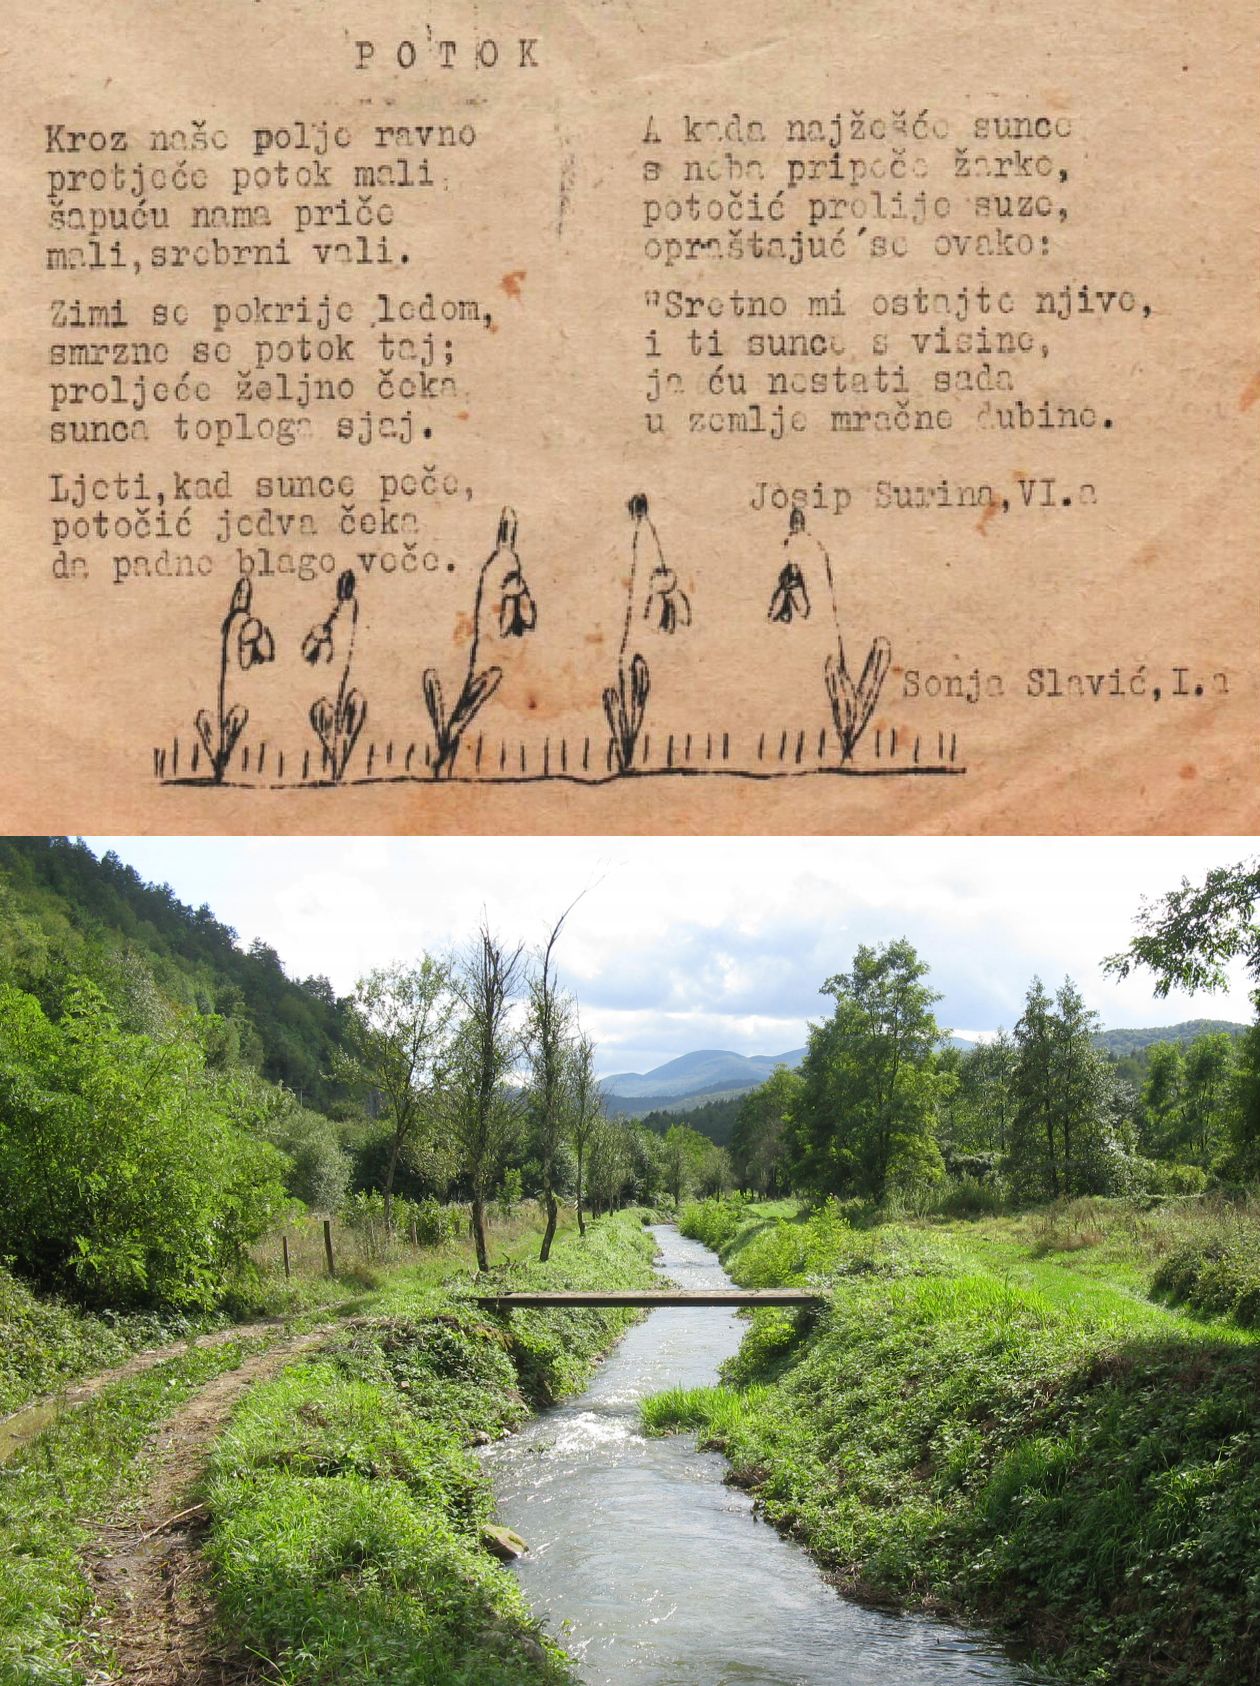 POTOK
Kroz naše polje ravno
protječe potok mali,
šapuću nama priče
mali,srebrni vali.
Zimi se pokrije ledom,
smrzne se potok taj;
proljeće željno čeka
sunca toploga sjaj.
Ljeti,kad sunce peče,
potočić jedva čeka
da padne blago veče.
A kada najžešće sunce
s neba pripeče žarko,
potočić prolije suze,
opraštajuć´se ovako:
"Sretno mi ostajte njive,
i ti sunce s visine,
ja ću nestati sada
u zemlje mračne dubine.
Josip Surina,VI.a
Sonja Slavić,I.a